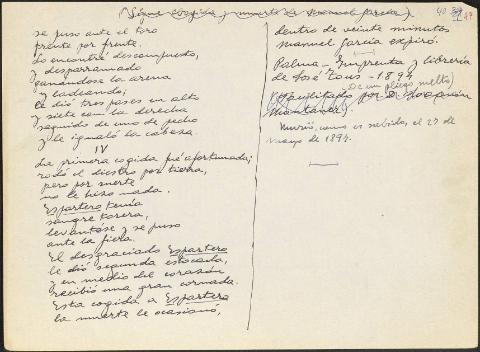 (Sigue cogida y muerte de Manuel García).
se puso ante el toro
frente por frente.
Lo encontró descompuesto,
y desparramado
ganándose la arena
y ladeando;
le dió tres pases en alto
y siete con la derecha
seguido de uno de pecho
y le igualó la cabeza.
IV
La primera cogida fué afortunada;
rodó el diestro por tierra,
pero por suerte
no le hizo nada.
Espartero tenía
sangre torera,
levantóse y se puso
ante la fiera.
El desgraciado Espartero
le dió segunda estocada,
y en medio del corazón
recibió una gran cornada.
Esta cogida a Espartero
la muerte le ocasionó,
40
47
dentro de veinte minutos
Manuel García expiró.
Palma - Imprenta y librería
de José Tous - 1894
De un pliego suelto)
(Facilitado por D. Joaquín
Montaner).
Murió, como es sabido, el 27 de
mayo de 1894.